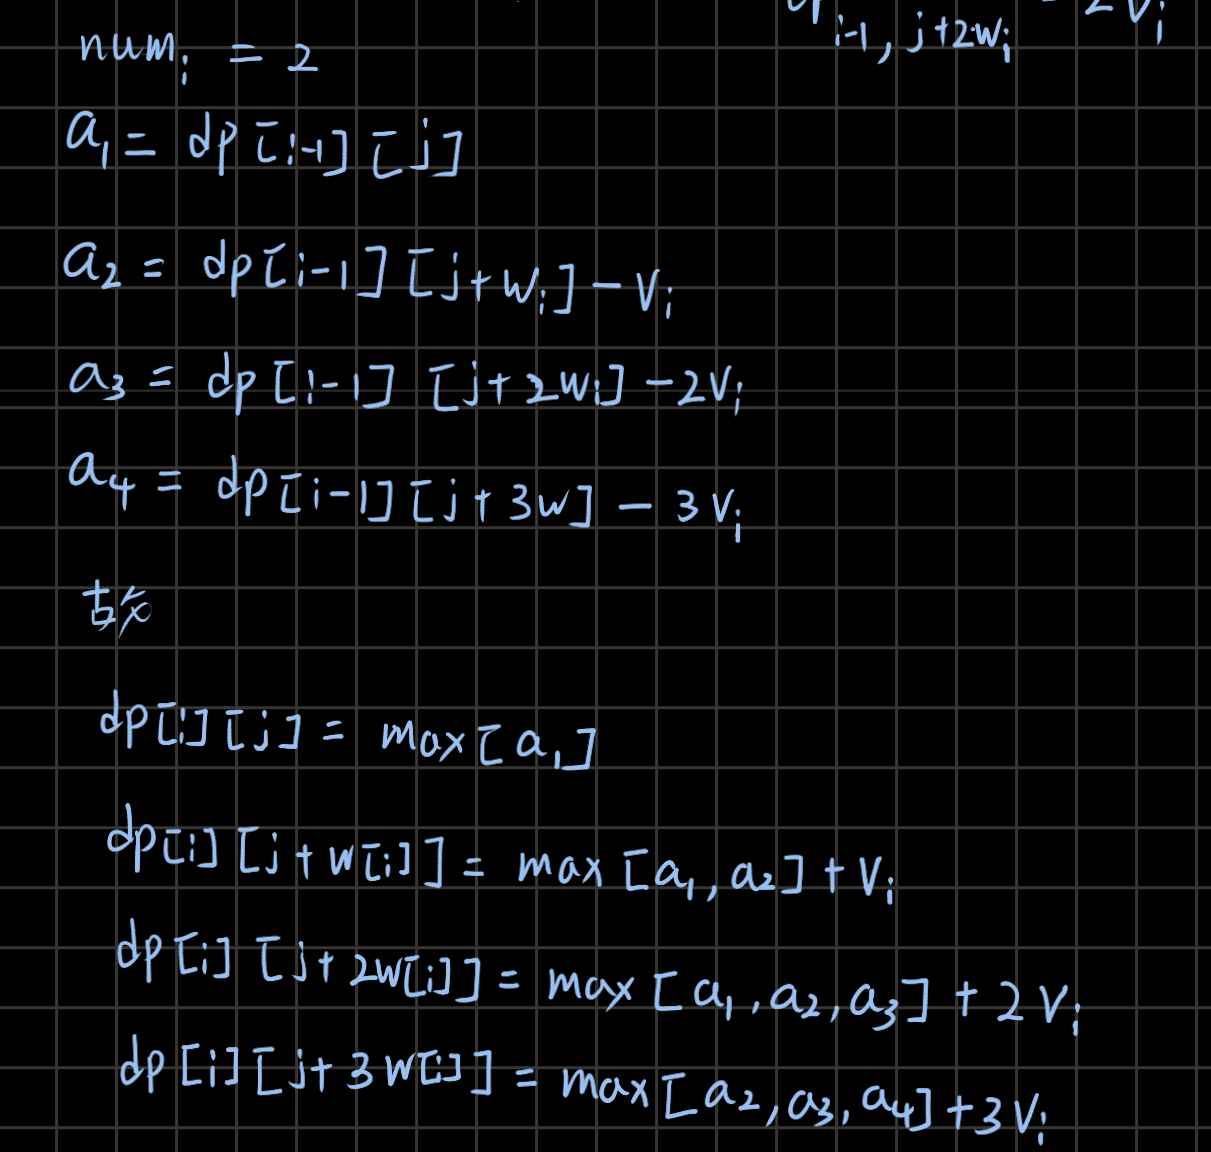 i-1, j+2·wᵢ - 2Vᵢ
numᵢ = 2
a₁ = dp[i-1][j]
a₂ = dp[i-1][j+wᵢ] - Vᵢ
a₃ = dp[i-1][j+2wᵢ] - 2Vᵢ
a₄ = dp[i-1][j+3w] - 3Vᵢ
dp[i][j] = max[a₁]
dp[i][j+w[i]] = max[a₁, a₂] + Vᵢ
dp[i][j+2w[i]] = max[a₁, a₂, a₃] + 2Vᵢ
dp[i][j+3w[i]] = max[a₂, a₃, a₄] + 3Vᵢ